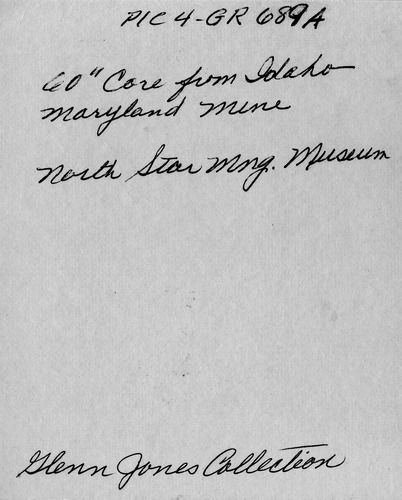 PIC 4-GR 689A
60" Core from Idaho
Maryland Mine
North Star Mng. Museum
Glenn Jones Collection